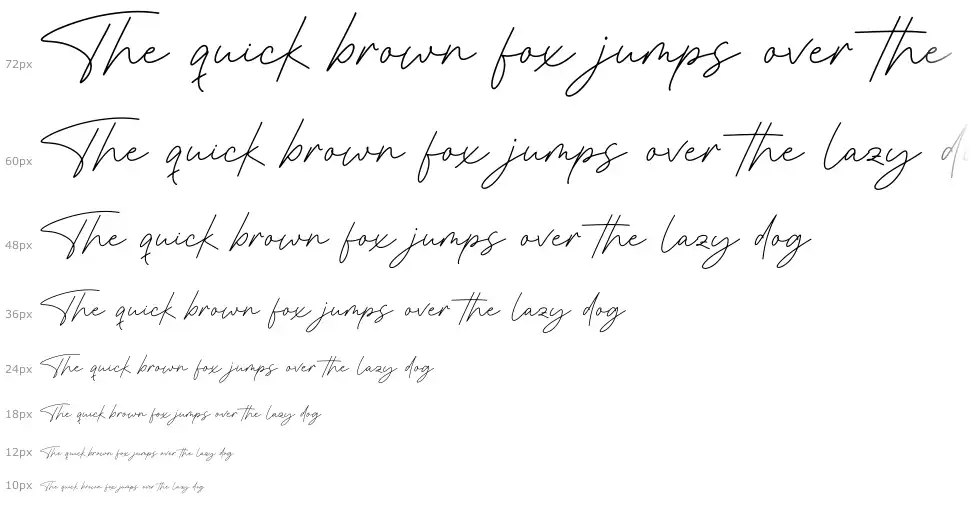 72px The quick brown fox jumps over the
60px The quick brown fox jumps over the lazy d
48px The quick brown fox jumps over the lazy dog
36px The quick brown fox jumps over the lazy dog
24px The quick brown fox jumps over the lazy dog
18px The quick brown fox jumps over the lazy dog
12px The quick brown fox jumps over the lazy dog
10px The quick brown fox jumps over the lazy dog